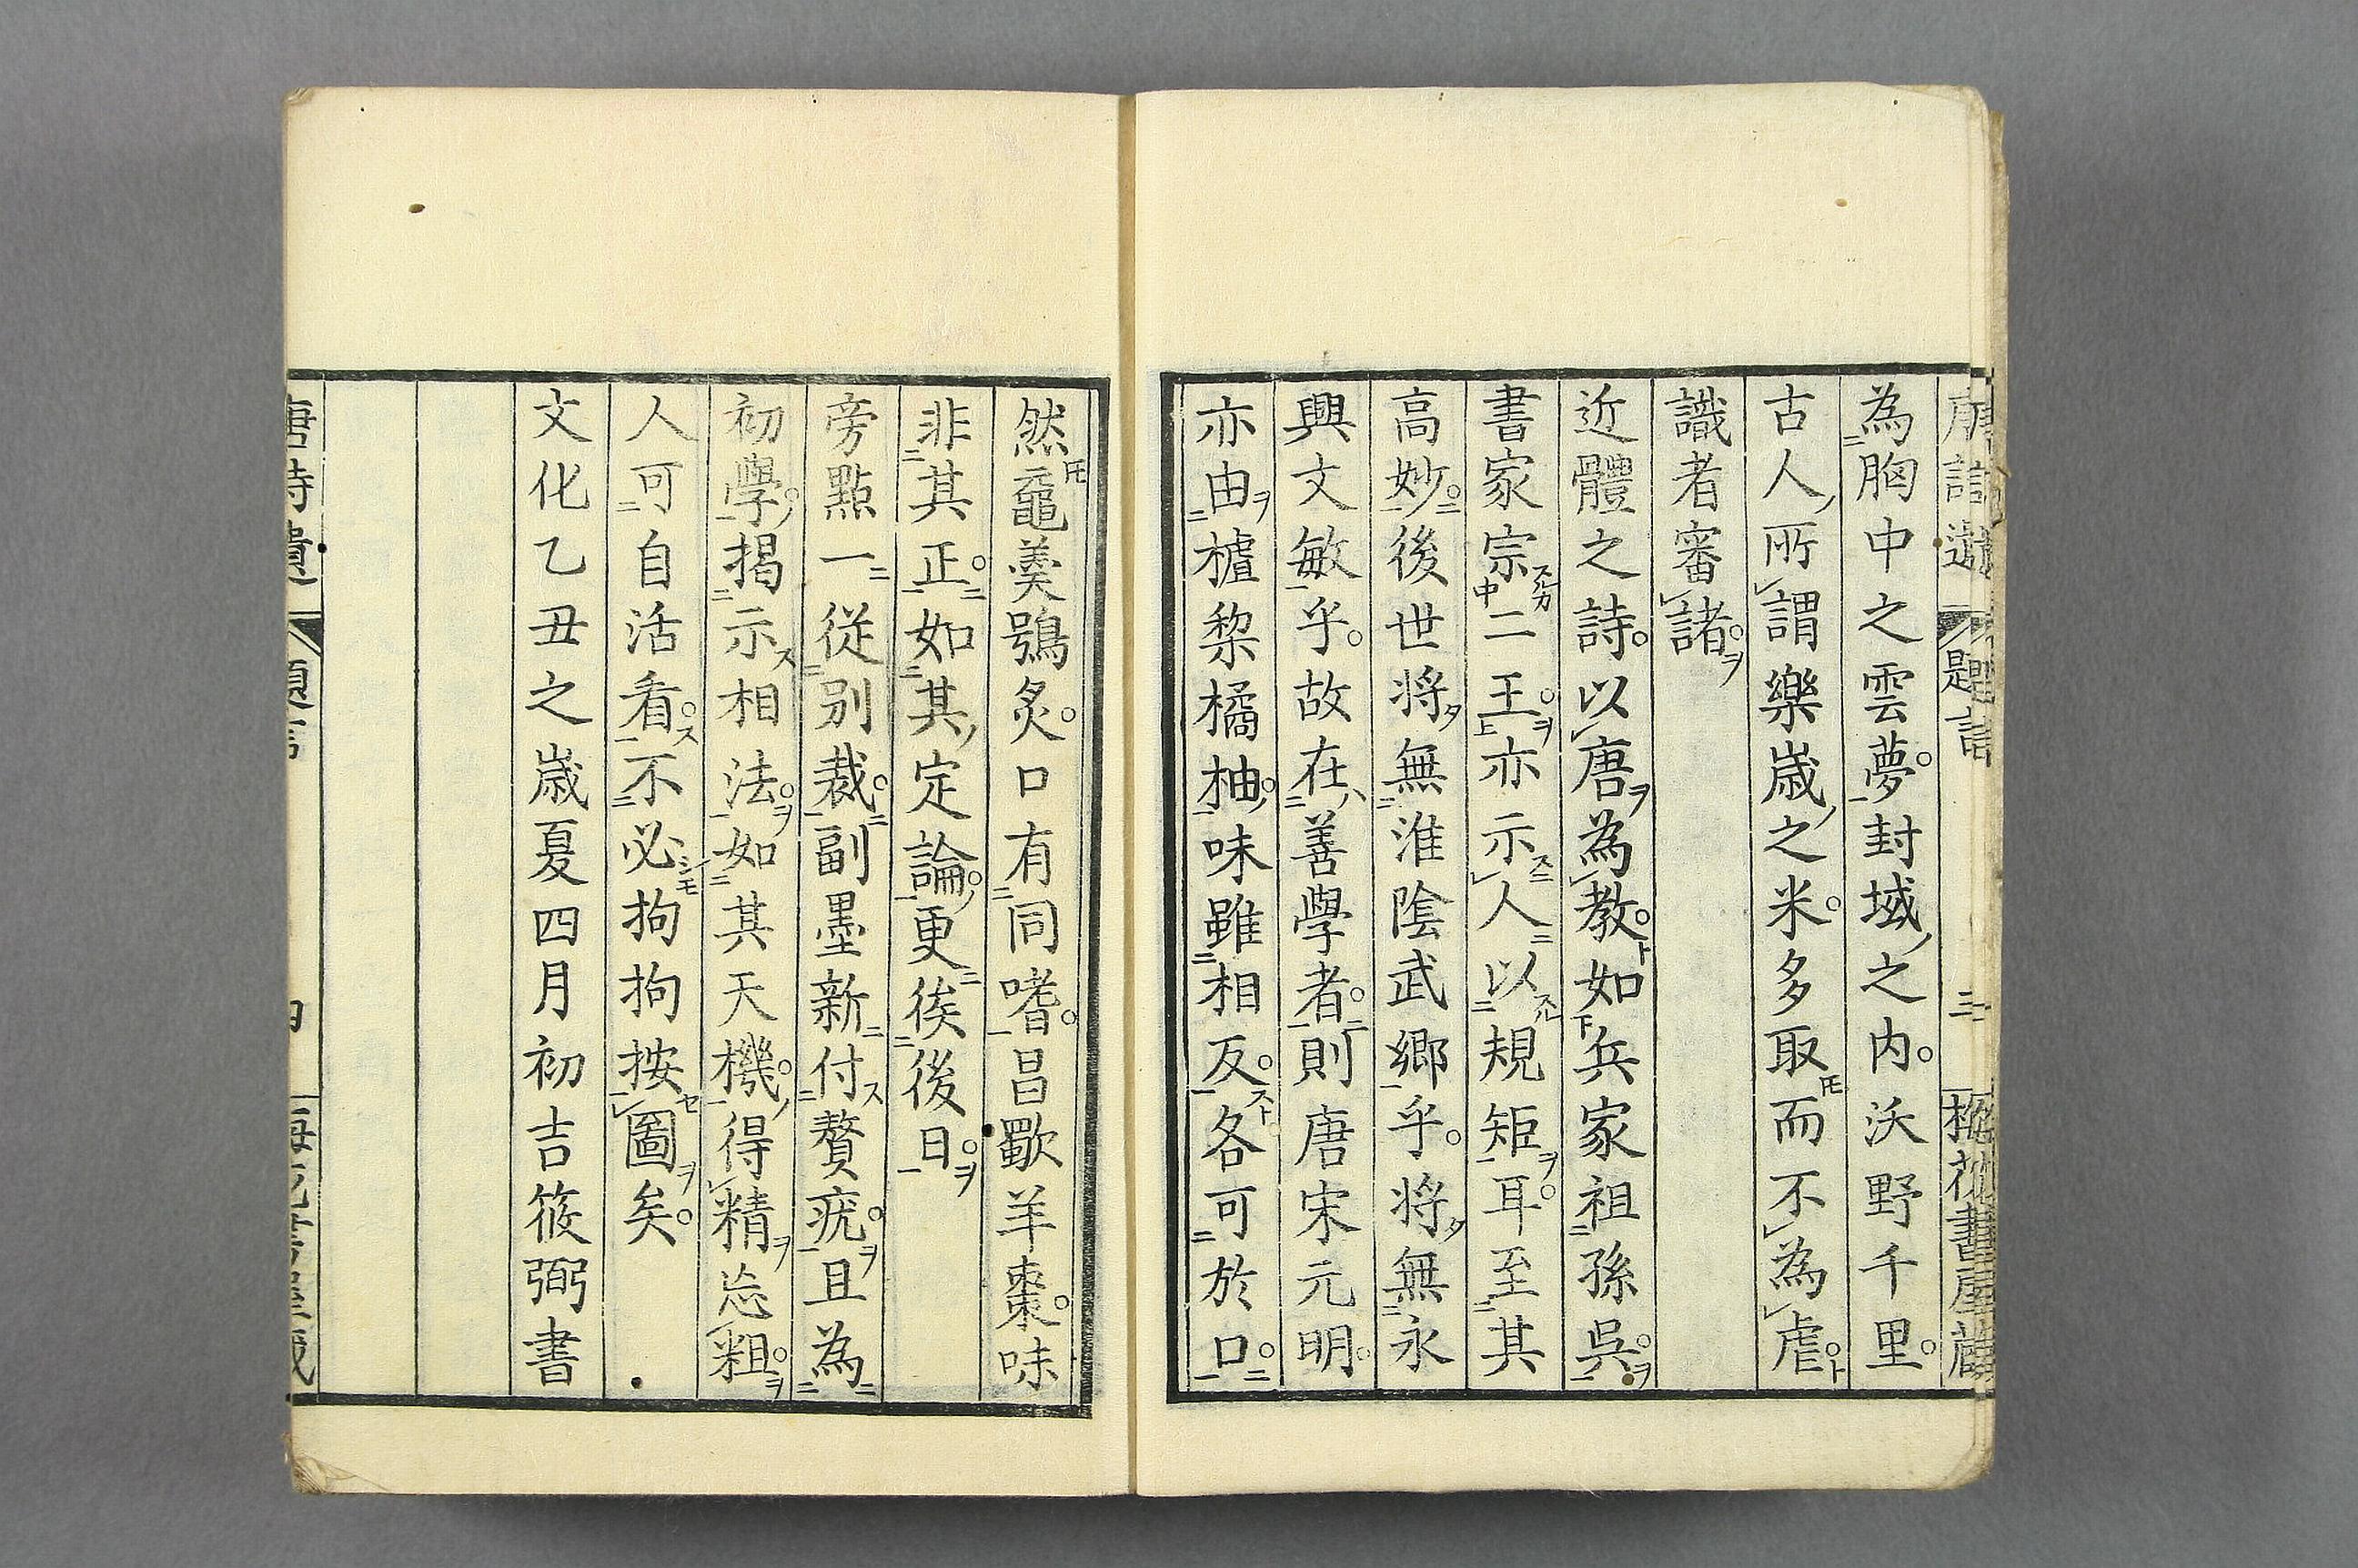 為胸中之雲夢。封域之内。沃野千里。
古人所謂樂歲之米。多取而不為虐。
識者審諸。
近體之詩。以唐為教。如兵家祖孫吳。
書家宗二王。亦示人以規矩耳。至其
高妙。後世將無淮陰武鄉乎。將無永
興文敏乎。故在善學者。則唐宋元明。
亦由樝棃橘柚。味雖相反。各可於口。
然黿羹鴞炙。口有同嗜。昌歜羊棗。味
非其正。如其定論。更俟後日。
旁點一從別裁。副墨新付贅疣。且為
初學。揭示相法。如其天機。得精忘粗。
人可自活看。不必拘拘按圖矣。
文化乙丑之歲夏四月初吉筱弼書
唐詩遺